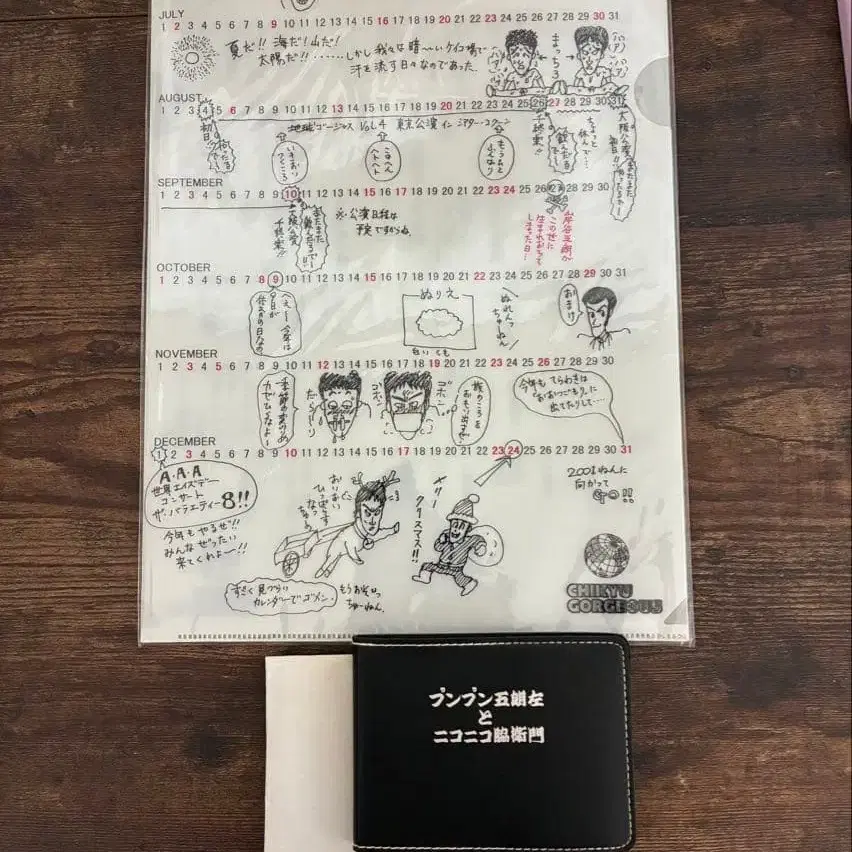 JULY
1 2 3 4 5 6 7 8 9 10 11 12 13 14 15 16 17 18 19 20 21 22 23 24 25 26 27 28 29 30 31
夏だ!! 海だ!山だ!
太陽だ!! ……しかし我々は暗〜いケイコ場で
汗を流す日々なのであった。
まっちろ
ハア
ハア
AUGUST
1 2 3 4 5 6 7 8 9 10 11 12 13 14 15 16 17 18 19 20 21 22 23 24 25 26 27 28 29 30 31
地球ゴージャス Vol.4 東京公演 イン シアター・コクーン
初日
いきおい
このへん
ヘトヘト
もうあと
千穐楽!!
ちょっと
休んで…
大阪公演
初日!!
SEPTEMBER
1 2 3 4 5 6 7 8 9 10 11 12 13 14 15 16 17 18 19 20 21 22 23 24 25 26 27 28 29 30
またまた
飲んだるでー!!
大阪公演
千穐楽!!
※公演日程は
予定ですからね。
岸谷五朗が
この世に
生まれおちて
しまった日…
OCTOBER
1 2 3 4 5 6 7 8 9 10 11 12 13 14 15 16 17 18 19 20 21 22 23 24 25 26 27 28 29 30 31
へぇー今年は
9日が
体育の日なの
ぬりえ
ぬれんっ
ちゅーねん
おまけ
NOVEMBER
1 2 3 4 5 6 7 8 9 10 11 12 13 14 15 16 17 18 19 20 21 22 23 24 25 26 27 28 29 30
季節の変わりめ
カゼひくなよ〜
だら〜り
ゴホッ
ゴホン
今年も てらわきは
出てたりして…
DECEMBER
1 2 3 4 5 6 7 8 9 10 11 12 13 14 15 16 17 18 19 20 21 22 23 24 25 26 27 28 29 30 31
A・A・A
世界エイズデー
コンサート
ザ・バラエティー8!!
今年もやるぜ!!
みんなぜったい
来てくれよー!!
メリー
クリスマス!!
2001ねんに
向かって
GO!!
すごく見づらい
カレンダーでゴメン。
もうおそいっ
ちゅーねん。
CHIKYU
GORGEOUS
プンプン五朗左
と
ニコニコ脇衛門